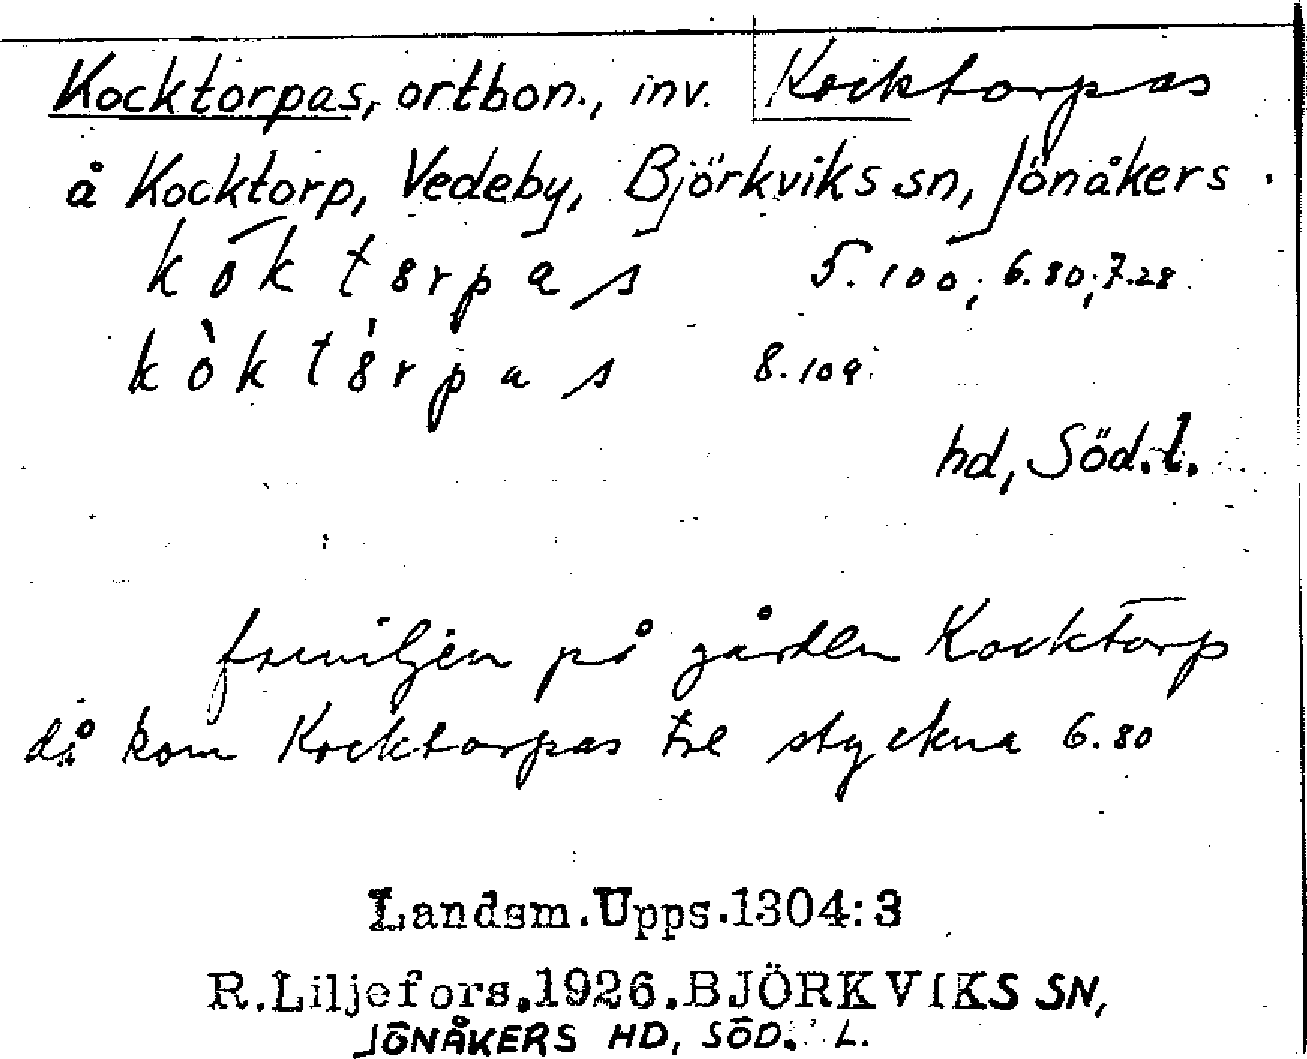 Kocktorpas, ortbon., inv. Kocktorpas
å Kocktorp, Vedeby, Björkviks sn, Jönåkers
k ō k t 8 r p a s 5.100; 6.80; 7.28
k ò k t 8̀ r p a s 8.109
hd, Söd. l.
familjen på gården Kocktorp
då kom Kocktorpas tre styckna 6.80
Landsm.Upps.1304:3
R.Liljefors.1926.BJÖRKVIKS SN,
JÖNÅKERS HD, SÖD. L.